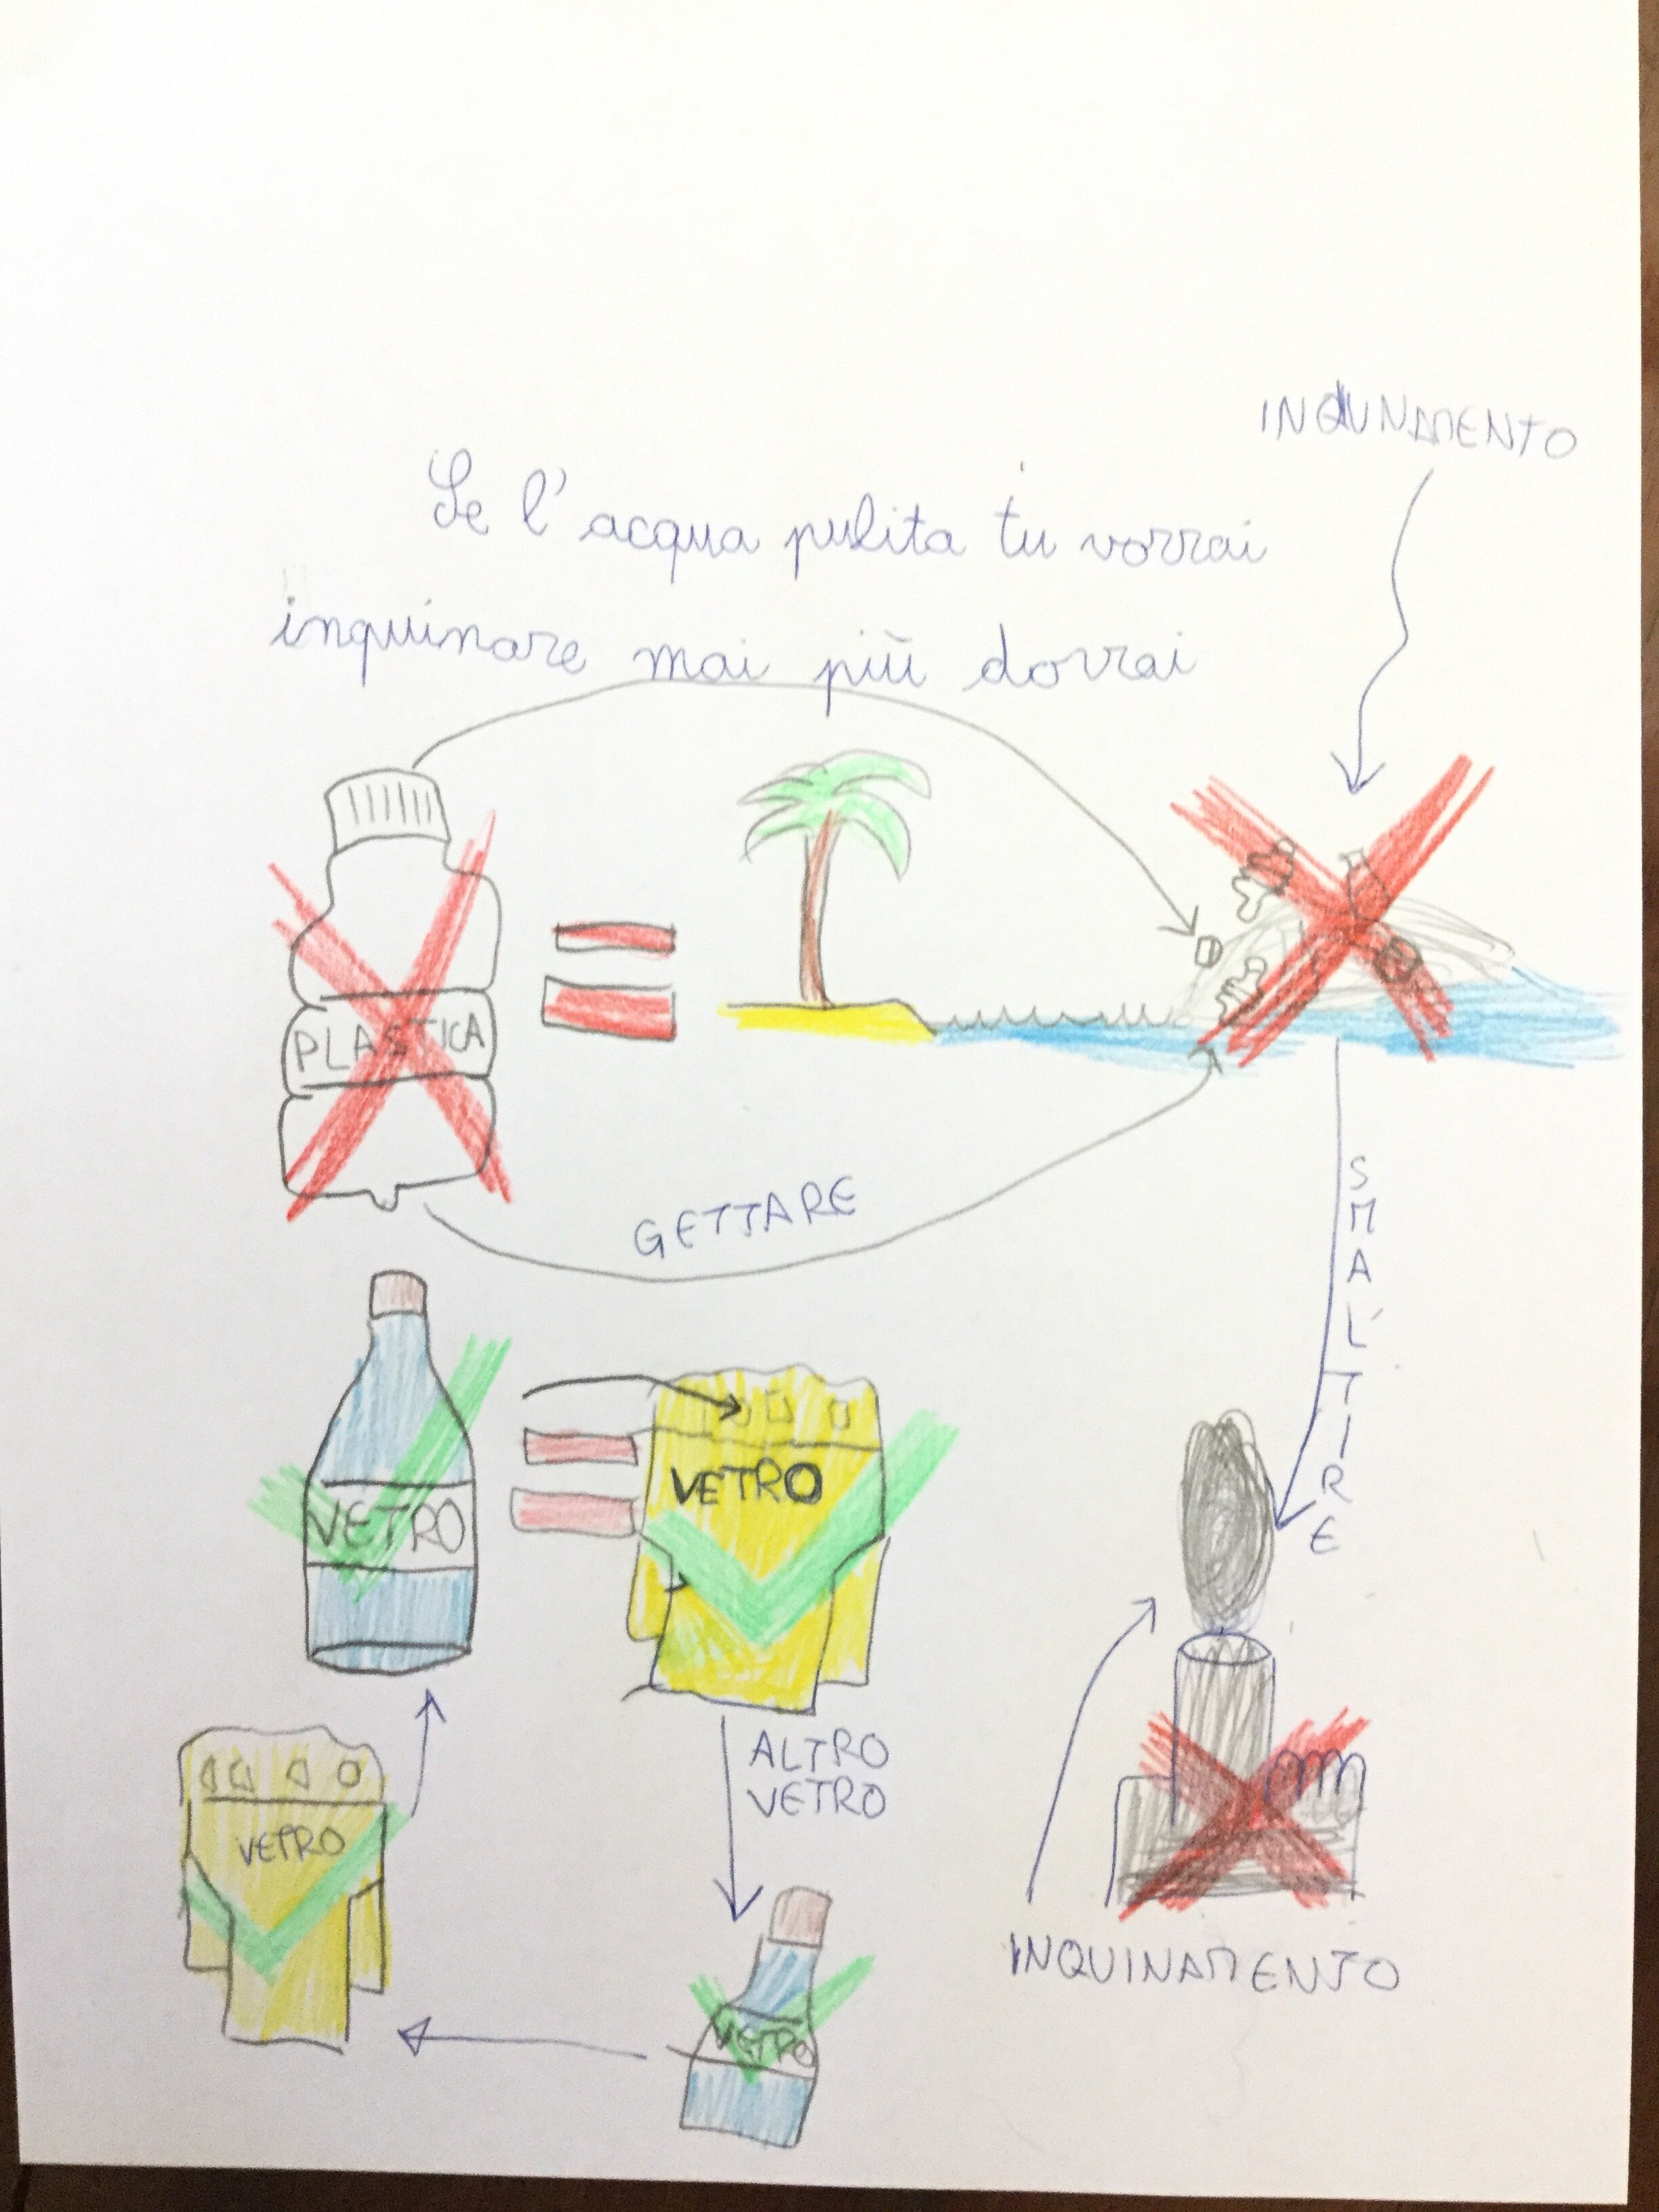 INQUNAMENTO
Se l'acqua pulita tu vorrai
inquinare mai più dovrai
PLASTICA
GETTARE
SMALTIRE
VETRO
VETRO
ALTRO
VETRO
VETRO
VETRO
INQUINAMENTO